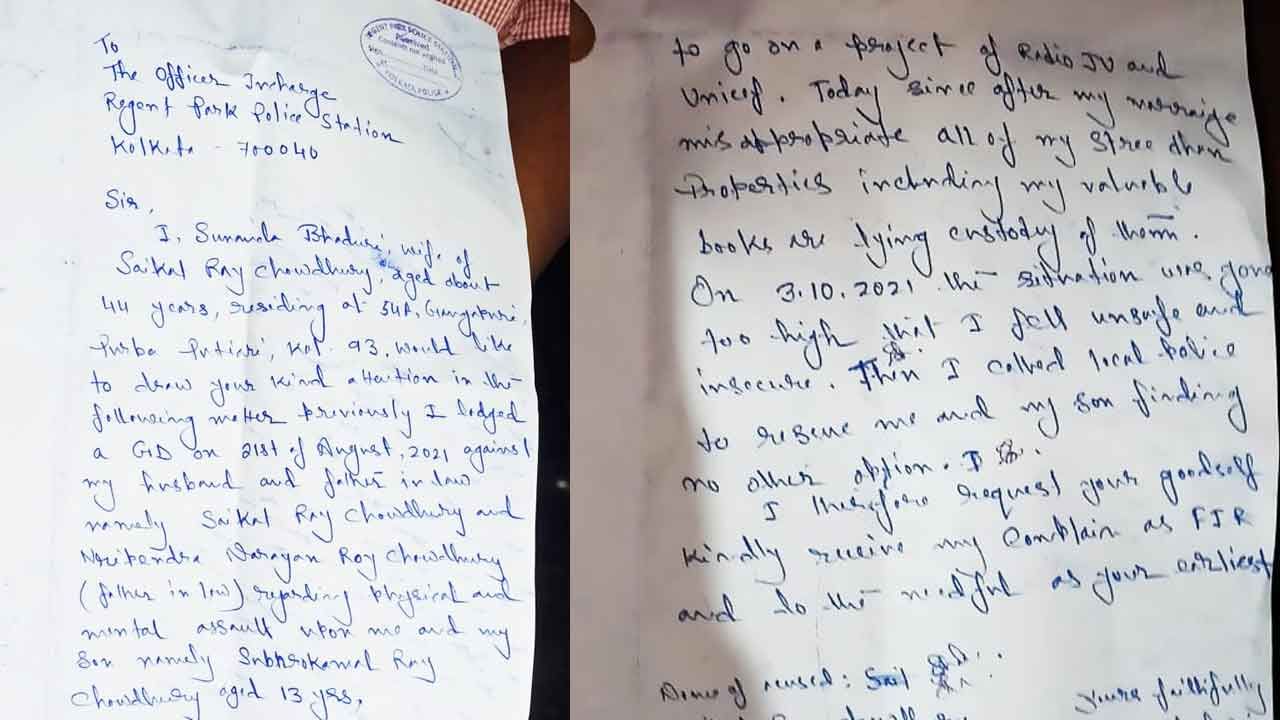 To
The Officer Incharge
Regent Park Police Station
Kolkata - 700040
Sir,
I, Sunanda Bhaduri, wife of
Saikal Ray Chowdhury, aged about
44 years, residing at 54A, Gangapuri,
Purba Putiari, Kol. 93, would like
to draw your kind attention in the
following matter previously I lodged
a GD on 21st of August, 2021 against
my husband and father in law
namely Saikal Ray Chowdhury and
Nripendra Narayan Roy Chowdhury
(father in law) regarding physical and
mental assault upon me and my
son namely Subhrokamal Ray
Chowdhury aged 13 yrs,
to go on a project of Radio JU and
Unicef. Today since after my marraige
misappropriate all of my Stree dhan
Properties including my valuable
books are lying custody of them.
On 3.10.2021 the situation was gone
too high that I fell unsafe and
insecure. Then I called local Police
to rescue me and my son finding
no other option. I
I therefore request your goodself
kindly receive my Complain as FIR
and do the needful as your earliest
Name of accused: Sail
yours faithfully